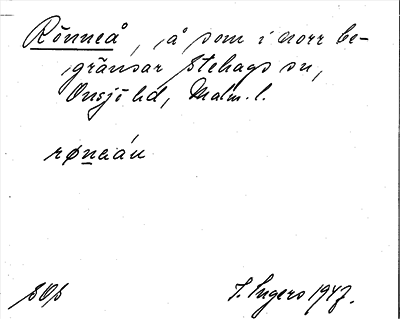 Rönneå, å som i norr be-
gränsar Stehags sn,
Onsjö hd, Malm. l.
rønəán
sOp
I. Ingers 1947.